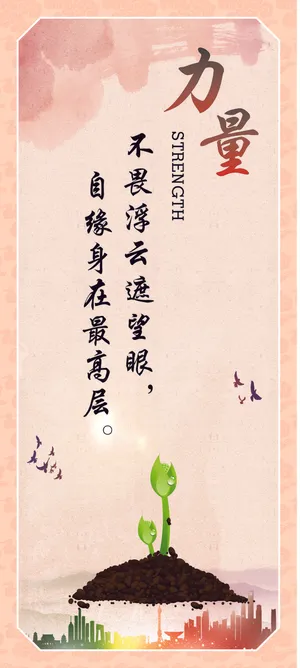 力量
STRENGTH
不畏浮云遮望眼，
自缘身在最高层。